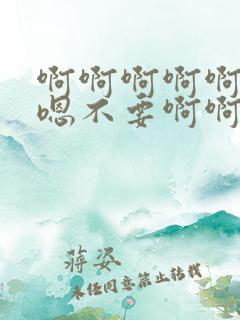 啊啊啊啊啊
嗯不要啊啊
蒋姿
未经同意禁止转载